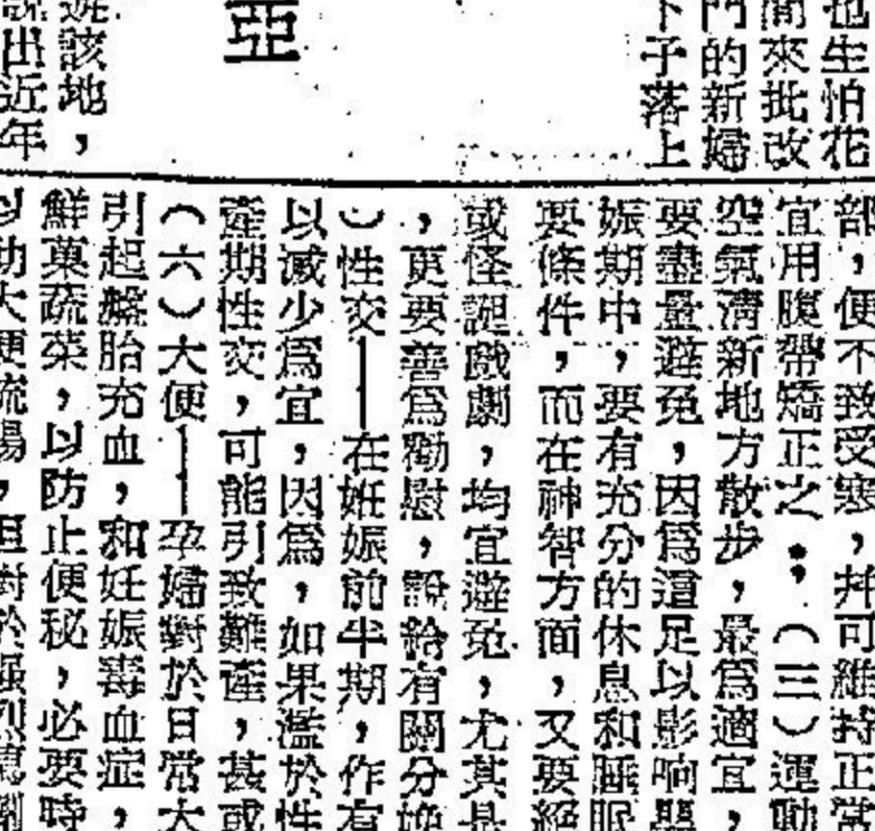 也生怕花
間來批改
門的新婦
下子落上
亞
遊該地，
說出近年
部，便不致受寒，并可維持正常
宜用腹帶矯正之：（三）運動
空氣清新地方散步，最爲適宜，
要盡量避免，因爲這足以影响嬰
娠期中，要有充分的休息和睡眠
要條件，而在神智方面，又要絕
或怪誕戲劇，均宜避免，尤其是
，更要善爲勸慰，說給有關分娩
）性交——在妊娠前半期，作有
以減少爲宜，因爲，如果濫於性
產期性交，可能引致難產，甚或
（六）大便——孕婦對於日常大
引起盤胎充血，和妊娠毒血症，
鮮菓蔬菜，以防止便秘，必要時
以助大便流暢，但對於强烈瀉劑